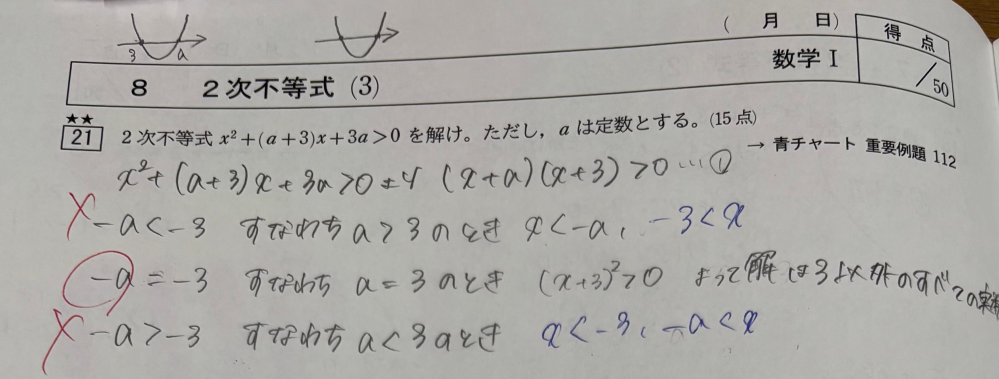 3 a
( 月 日)
得点
/50
8 2次不等式 (3) 数学Ⅰ
★★
21 2次不等式 x²+(a+3)x+3a>0 を解け。ただし，a は定数とする。(15点)
→ 青チャート 重要例題 112
x²+(a+3)x+3a>0 より (x+a)(x+3)>0 …①
-a<-3 すなわち a>3 のとき x<-a, -3<x
-a=-3 すなわち a=3 のとき (x+3)²>0 よって解は3以外のすべての実
-a>-3 すなわち a<3 aとき x<-3, -a<x